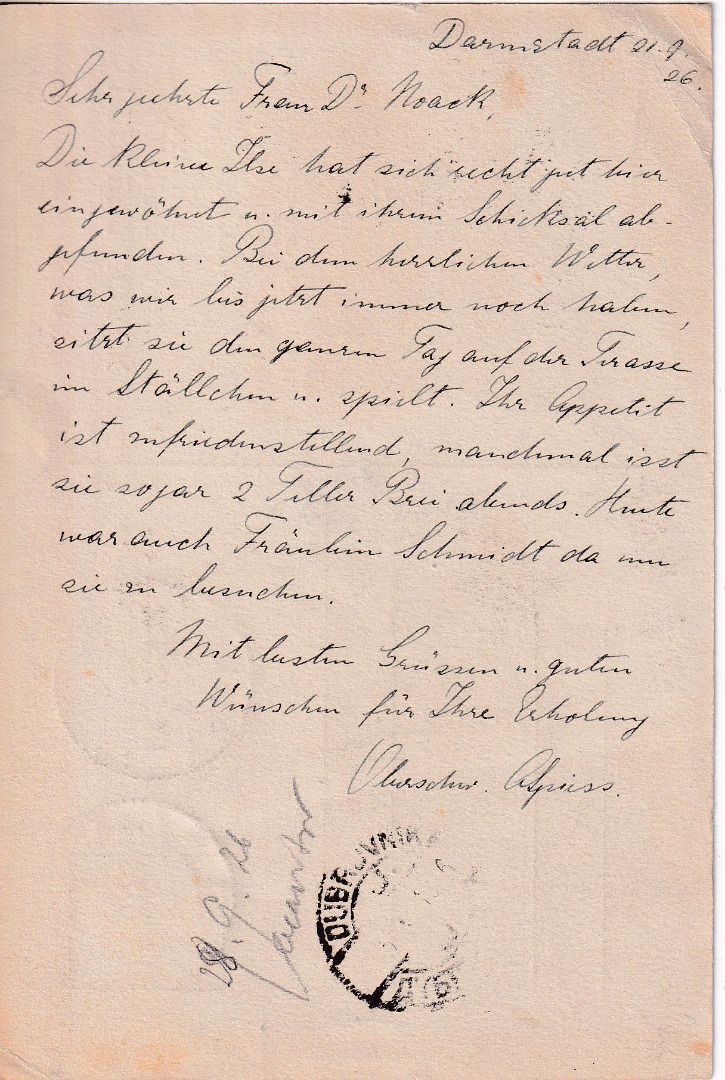 Darmstadt 21. 9.
26.
Sehr geehrte Frau Dr. Noack,
Die kleine Ilse hat sich recht gut hier
eingewöhnt u. mit ihrem Schicksal ab-
gefunden. Bei dem herrlichen Wetter,
was wir bis jetzt immer noch haben,
sitzt sie den ganzen Tag auf der Terasse
im Ställchen u. spielt. Ihr Appetit
ist zufriedenstellend, manchmal isst
sie sogar 2 Teller Brei abends. Heute
war auch Fräulein Schmidt da um
sie zu besuchen.
Mit besten Grüssen u. guten
Wünschen für Ihre Erholung
Oberschw.
28. 9. 26
DUBROVNIK